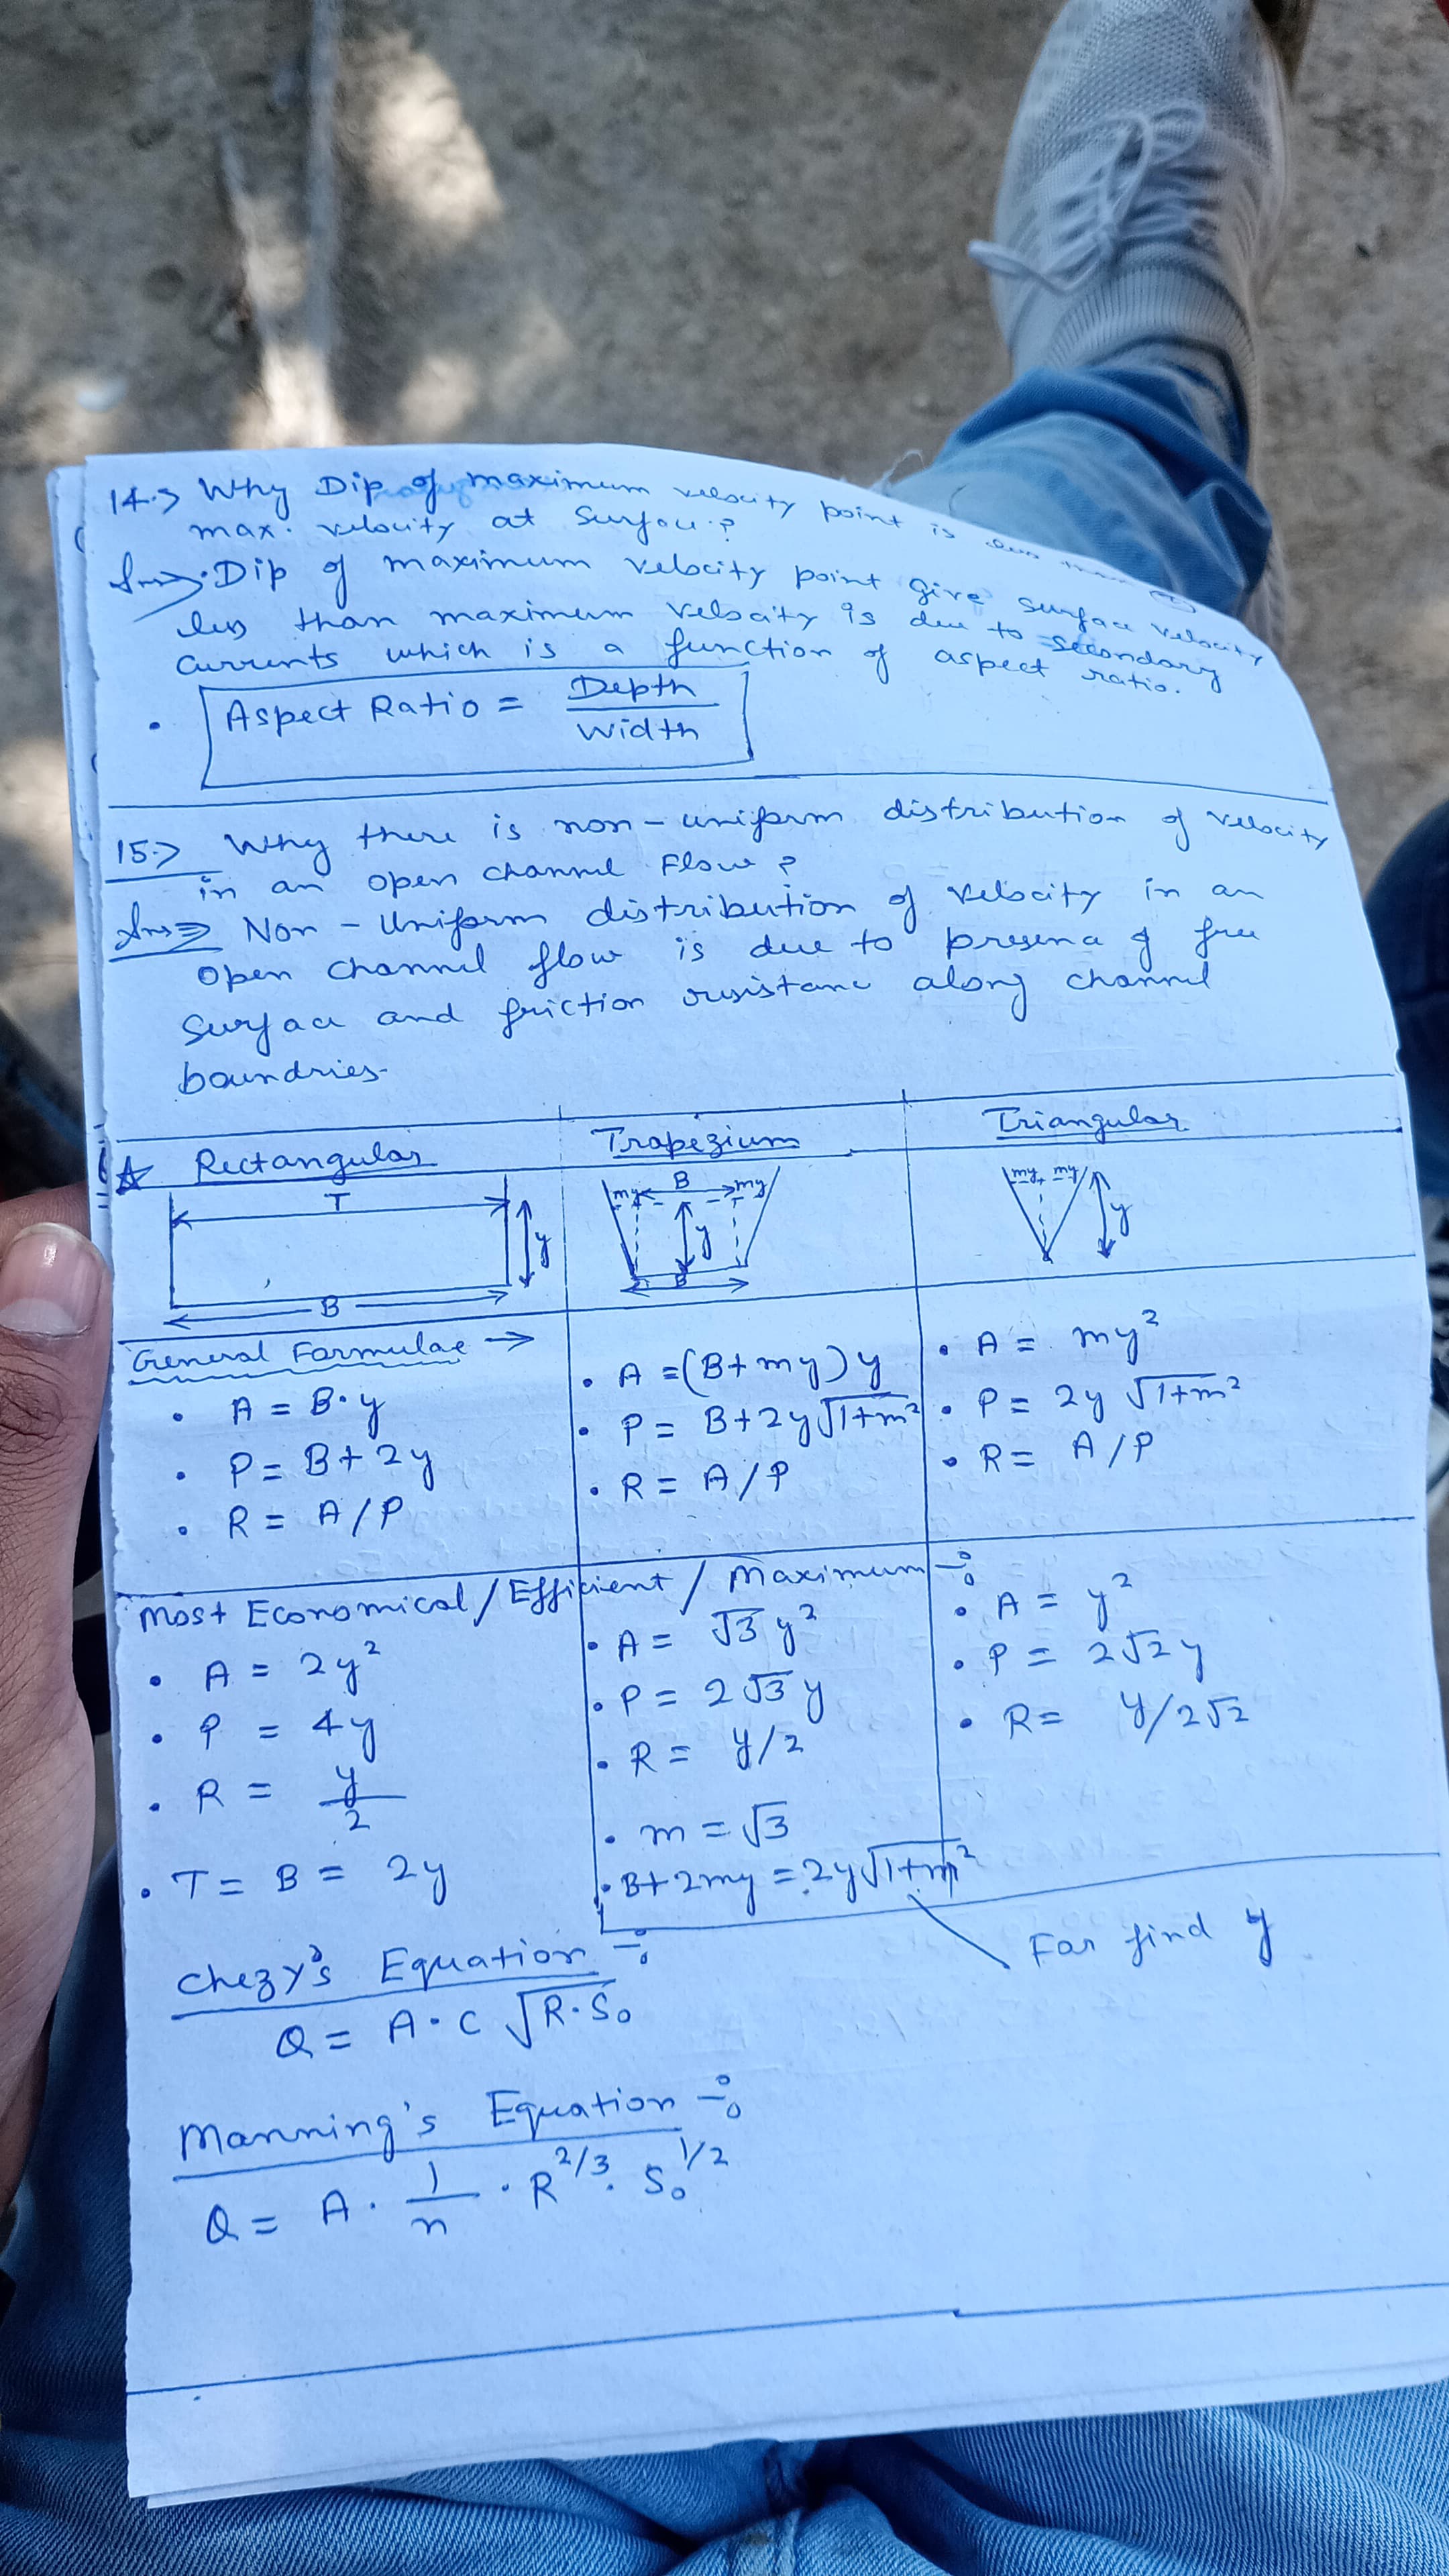 14.> Why Dip of maximum velocity point is less than
max. velocity at Surface?
Ans=>. Dip of maximum velocity point give surface velocity
less than maximum velocity is due to secondary
currents which is a function of aspect ratio.
• Aspect Ratio = Depth / Width
15.> Why there is non-uniform distribution of velocity
in an open channel Flow?
Ans=> Non-Uniform distribution of velocity in an
open channel flow is due to presence of free
surface and friction resistance along channel
boundries.
☆ Rectangular Trapezium Triangular
T y B
my B my y B
my my y
General Formulae →
• A = B·y
• P = B+2y
• R = A/P
• A = (B+my)y
• P = B+2y√1+m²
• R = A/P
• A = my²
• P = 2y √1+m²
• R = A/P
Most Economical/Efficient/Maximum÷
• A = 2y²
• P = 4y
• R = y/2
• T = B = 2y
• A = √3 y²
• P = 2√3 y
• R = y/2
• m = √3
• B+2my = 2y√1+m²
For find y
• A = y²
• P = 2√2 y
• R = y/2√2
Chezy's Equation ÷
Q = A·C √R·S₀
Manning's Equation ÷
Q = A · 1/n · R^2/3 · S₀^1/2